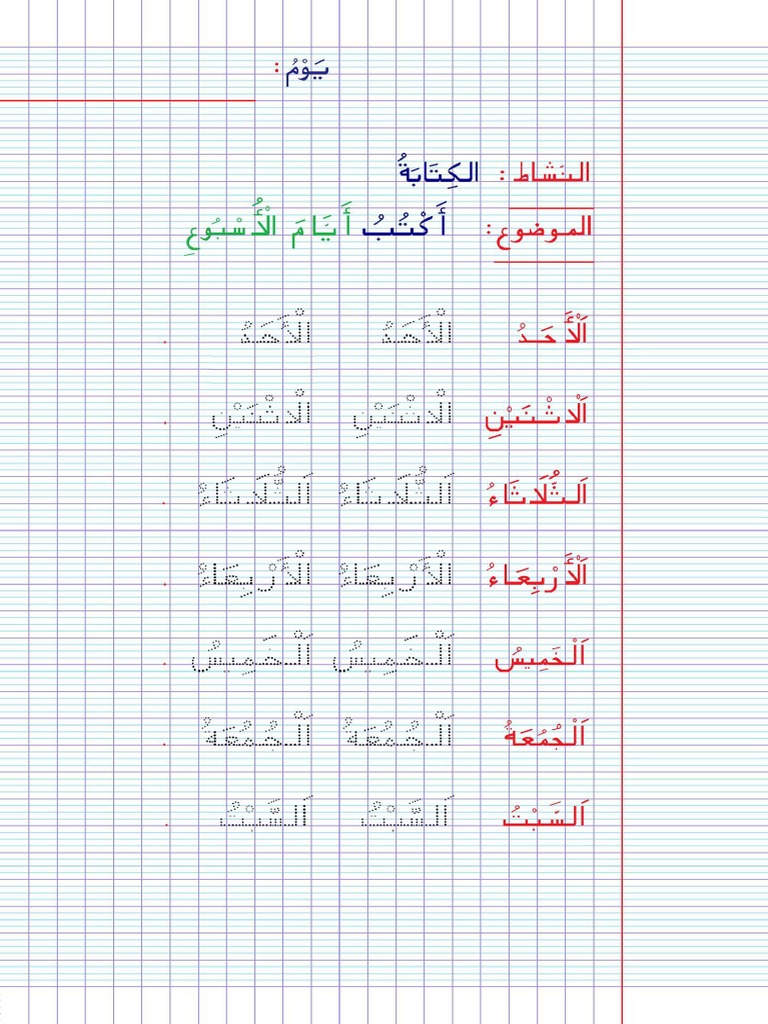 يَوْمُ :
النشاط : الكِتَابَةُ
الموضوع : أَكْتُبُ أَيَّامَ الْأُسْبُوعِ
اَلْأَحَدُ الْأَحَدُ الْأَحَدُ .
اَلْاثْنَيْنِ الْاثْنَيْنِ الْاثْنَيْنِ .
اَلثُّلَاثَاءُ اَلثُّلَاثَاءُ اَلثُّلَاثَاءُ .
اَلْأَرْبِعَاءُ الْأَرْبِعَاءُ الْأَرْبِعَاءُ .
اَلْخَمِيسُ اَلْخَمِيسُ اَلْخَمِيسُ .
اَلْجُمُعَةُ اَلْجُمُعَةُ اَلْجُمُعَةُ .
اَلسَّبْتُ اَلسَّبْتُ اَلسَّبْتُ .